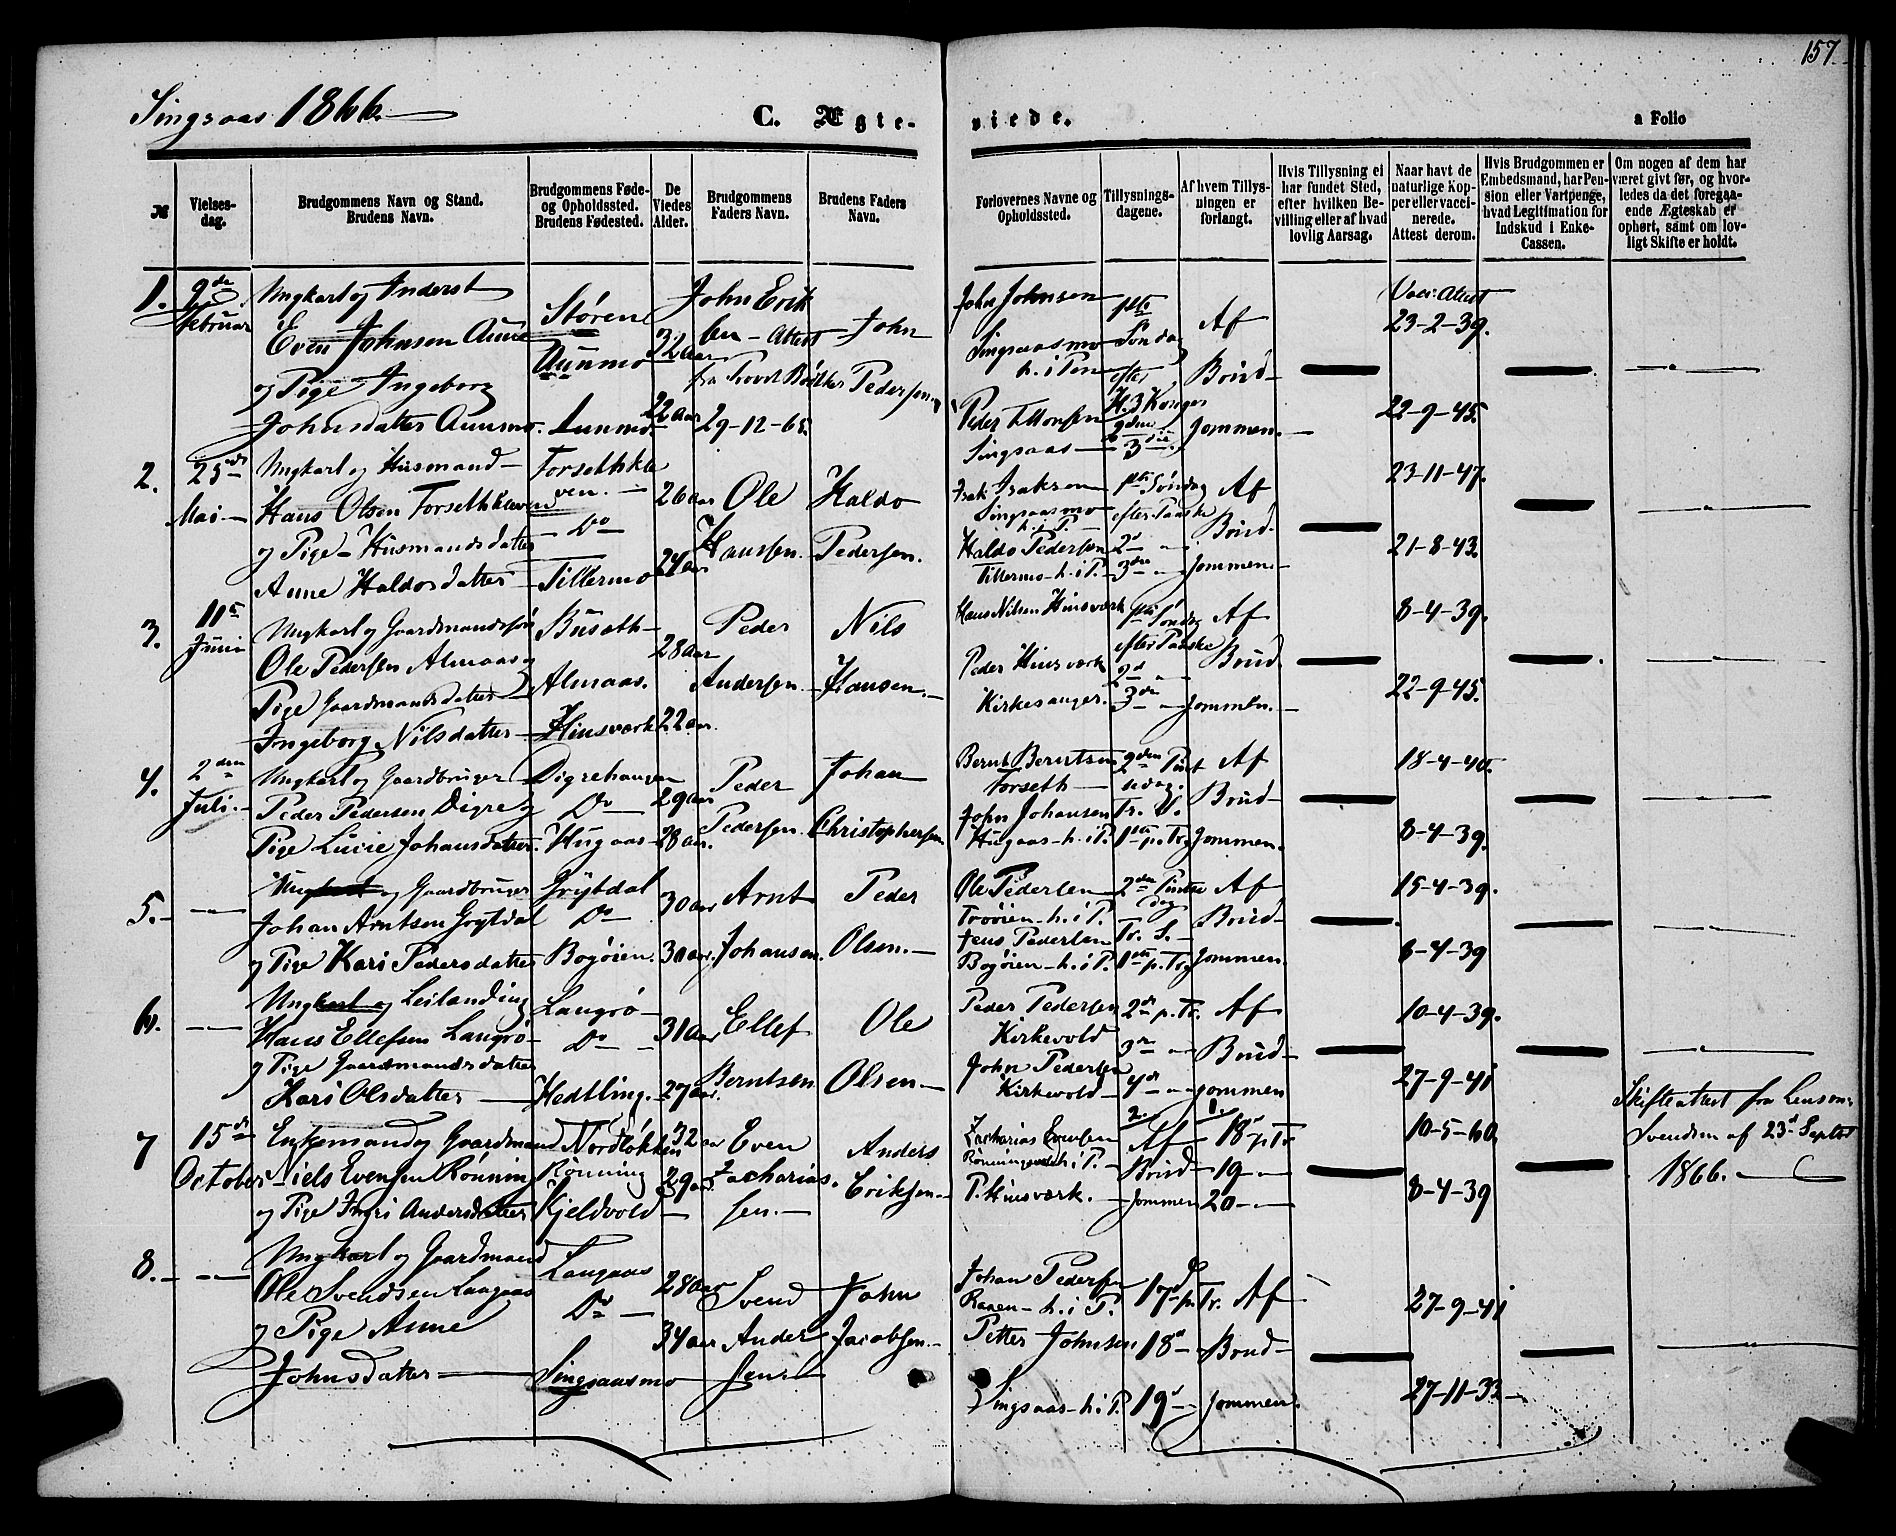 157
Singsaas 1866.
C. Ægte- viede.
a Folio
№
Vielses-dag.
Brudgommens Navn og Stand.
Brudens Navn.
Brudgommens Føde- og Opholdssted.
Brudens Fødested.
De Viedes Alder.
Brudgommens Faders Navn.
Brudens Faders Navn.
Forlovernes Navne og Opholdssted.
Tillysnings-dagene.
Af hvem Tillysningen er forlangt.
Hvis Tillysning ei har fundet Sted, efter hvilken Bevilling eller af hvad lovlig Aarsag.
Naar havt de naturlige Kopper eller vaccinerede. Attest derom.
Hvis Brudgommen er Embedsmand, har Pension eller Vartpenge, hvad Legitimation for Indskud i Enke-Cassen.
Om nogen af dem har været givt før, og hvorledes da det foregaaende Ægteskab er ophørt, samt om lovligt Skifte er holdt.
1. 9de Februar
Ungkarl og Inderst
Even Johnsen Aune
og Pige Ingeborg
Johnsdatter Aunmo.
Støren
Aunmo
Aunmo.
32 aar
22 aar
John Erik
sen - Attest
fra Provst
29-12-65.
John
Pedersen
John Johnsen
Singsaasmo
h. i Pen
Peder Ellevsen
Singsaas
1ste Søndag
efter
H. 3 Konger
2den
3die
Af
Brud-
gommen.
Vacc. Attest
23-2-39.
22-9-45.
2. 25de Mai
Ungkarl og Husmand
Hans Olsen Forsethkleven
og Pige - Husmandsdatter
Anne Haldosdatter
Forsethkle
ven.
Do
Tillermo
26 aar
24 aar
Ole
Hansen.
Haldo
Pedersen.
Isak Isaksen
Singsaasmo
h. i P.
Haldo Pedersen
Tillermo - h. i P.
1ste Søndag
efter Paaske
2d
3die
Af
Brud-
gommen
23-11-47.
21-8-43.
3. 11te Juni
Ungkarl og Gaardmandssøn
Ole Pedersen Almaas og
Pige Gaardmandsdatter
Ingeborg Nilsdatter
Buseth
Almaas.
Hinsværk
28 aar
22 aar.
Peder
Andersen.
Nils
Hansen.
Hans Nilsen Hinsværk
Peder Hinsværk
Kirkesanger.
1ste Søndag
efter Paaske
2d
3die
Af
Brud
gommen.
8-4-39.
22-9-45.
4. 2den Juli.
Ungkarl og Gaardbruger
Peder Pedersen Digre og
Pige Lucie Johansdatter.
Digrehaugen
Do
Hugaas
29 aar
28 aar.
Peder
Pedersen.
Johan
Christophersen
Bernt Berntsen
Forseth
John Johansen
Hugaas - h. i P.
2den Pint
sedag.
Tr. S.
1ste p. Tr.
Af
Brud-
gommen.
18-4-40.
8-4-39.
5.
Ungkarl og Gaardbruger
Johan Arntsen Grytdal
og Pige Kari Pedersdatter
Grytdal
Do
Bogøien.
30 aar
30 aar.
Arnt
Johansen.
Peder
Olsen.
Ole Pedersen
Troøien - h. i P.
Jens Pedersen
Bogøien - h. i P.
2den Pintse
dag
Tr. S.
1ste p. Tr.
Af
Brud-
gommen.
15-4-39.
8-4-39
6.
Ungkarl og Leilænding
Hans Ellefsen Langrø
og Pige Gaardmandsdatter
Kari Olsdatter
Langrø
Do
Hedtling.
31 aar
27 aar.
Ellef
Berntsen
Ole
Olsen
Peder Pedersen
Kirkevold
John Pedersen
Kirkevold
2de p. Tr.
3de
4de
Af
Brud-
gommen
10-4-39.
27-9-41
7 15de October
Enkemand og Gaardmand
Niels Evensen Rønning
og Pige Ingri Andersdatter
Nordløkken
Rønning
Kjeldvold
32 aar
29 aar.
Even
Zacharias
sen.
Anders
Eriksen.
Zacharias Evensen
h. i P.
P. Hinsværk.
2. Af
Brud
gommen
1. 18de p. Tr.
19
20
10-5-60
8-4-39
Skifteattest fra Lensm.
Svendsen af 23d Septbr
1866.
8.
Ungkarl og Gaardmand
Ole Svendsen Langaas
og Pige Anne
Johnsdatter
Langaas
Do
Singsaasmo
28 aar
34 aar
Svend
Ander
sen
John
Jacobsen.
Johan Pedersen
Ranen - h. i P.
Petter Johnsen
Singsaas - h. i P.
17de p. Tr.
18d
19d
Af
Brud-
gommen.
27-9-41
27-11-33